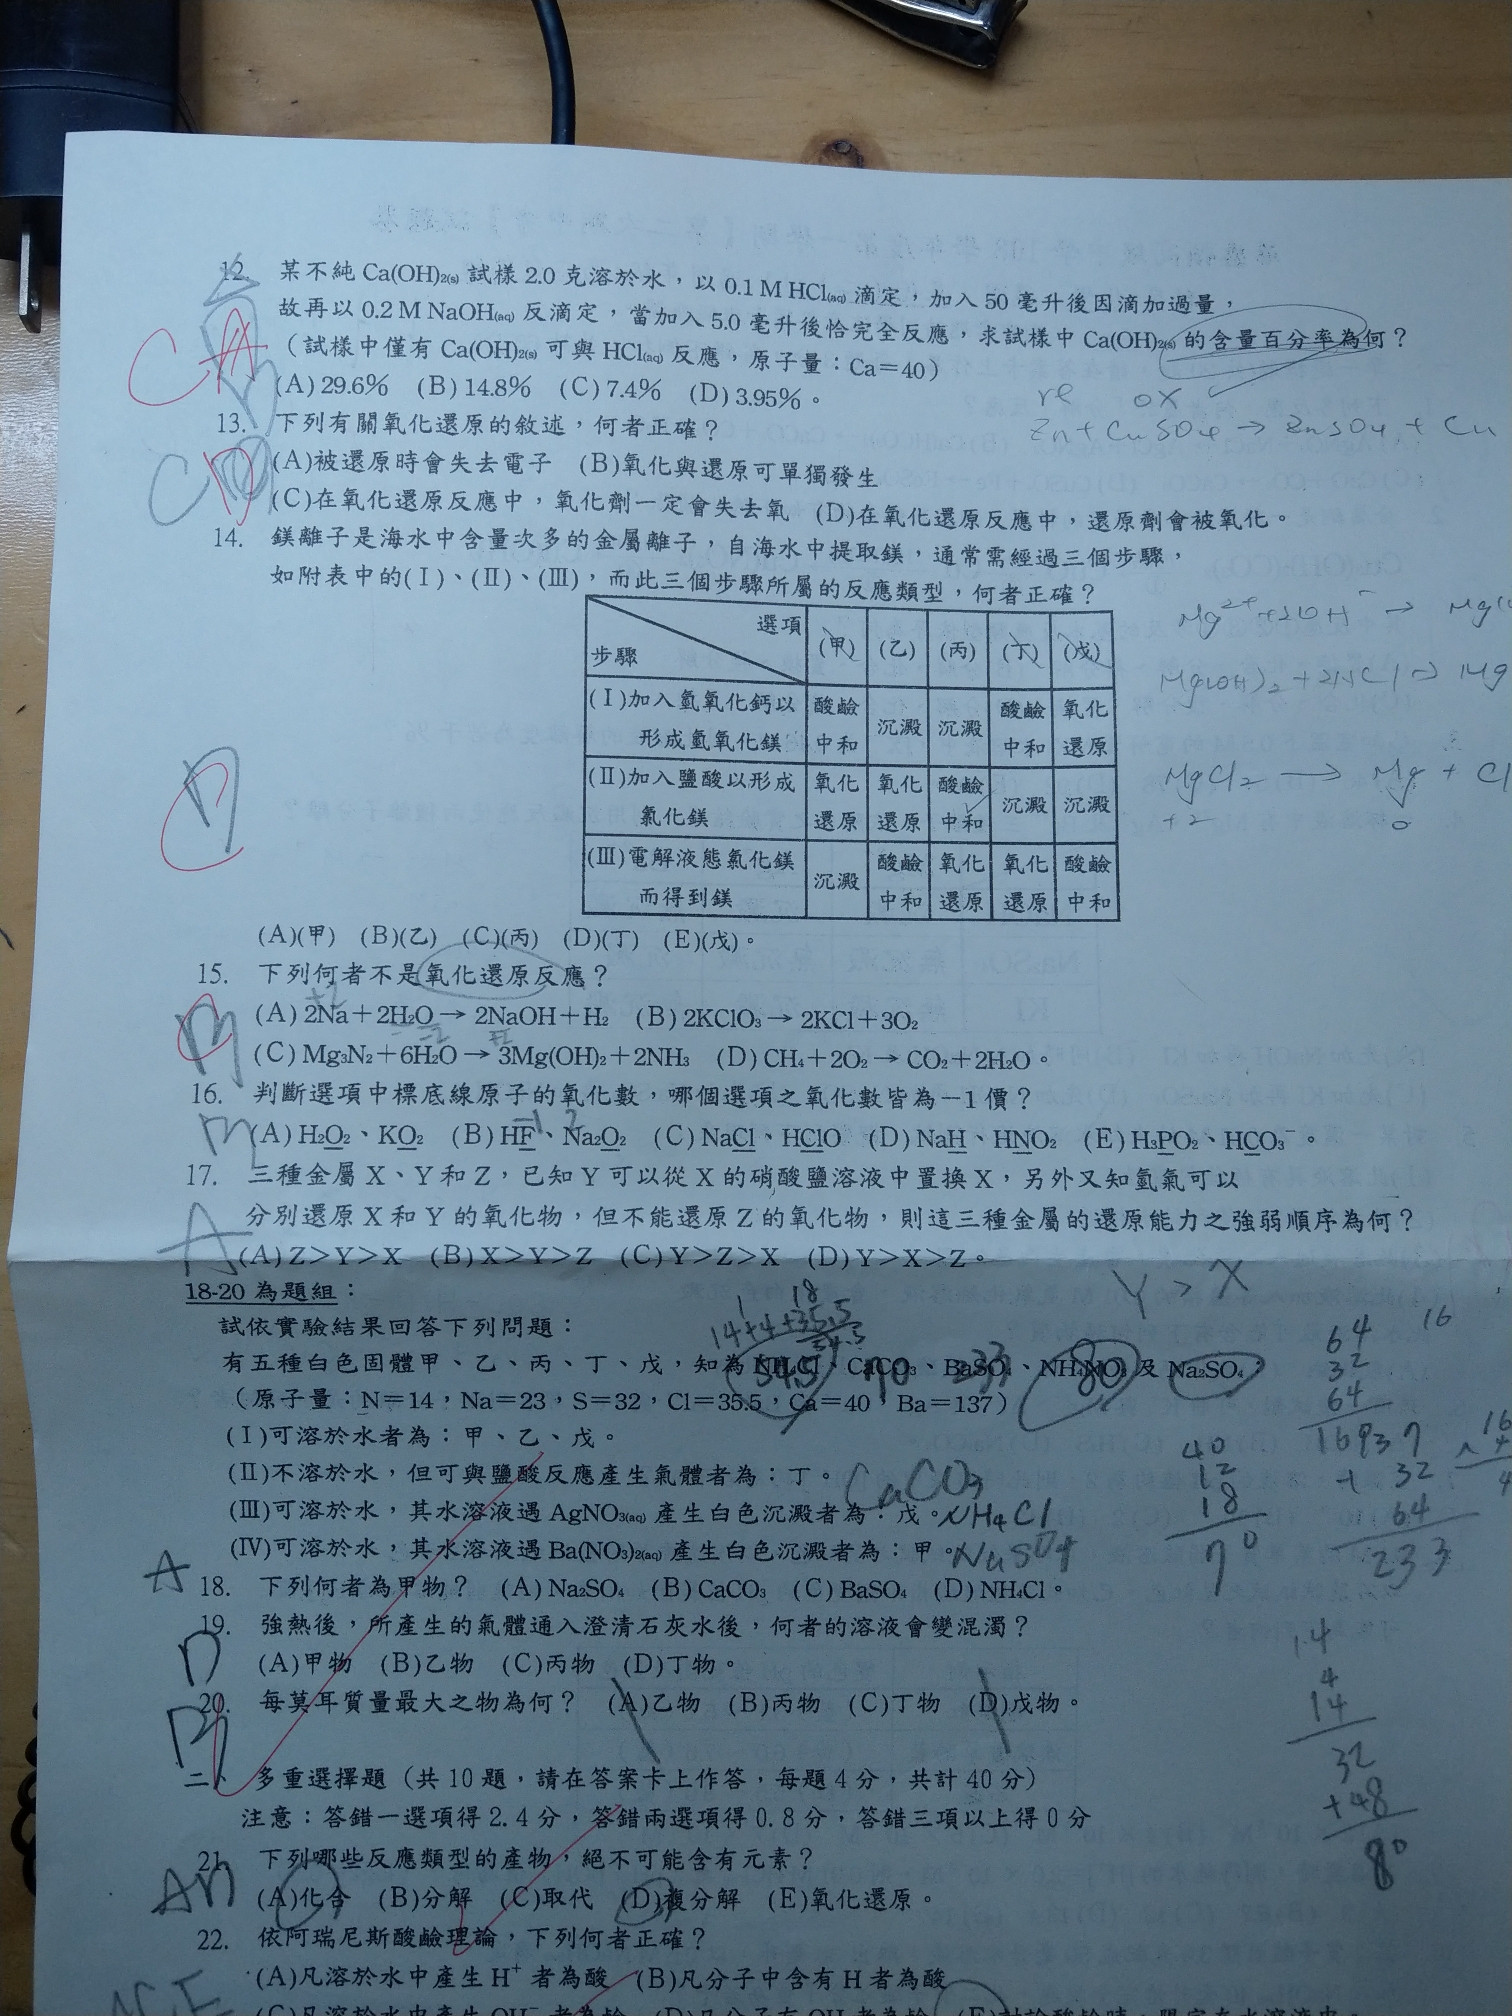 12. 某不純 Ca(OH)₂₍ₛ₎ 試樣 2.0 克溶於水，以 0.1 M HCl₍aq₎ 滴定，加入 50 毫升後因滴加過量，
故再以 0.2 M NaOH₍aq₎ 反滴定，當加入 5.0 毫升後恰完全反應，求試樣中 Ca(OH)₂₍ₛ₎ 的含量百分率為何？
（試樣中僅有 Ca(OH)₂₍ₛ₎ 可與 HCl₍aq₎ 反應，原子量：Ca＝40）
(A) 29.6％ (B) 14.8％ (C) 7.4％ (D) 3.95％。
CA
re ox
Zn + CuSO4 → ZnSO4 + Cu
13. 下列有關氧化還原的敘述，何者正確？
(A)被還原時會失去電子 (B)氧化與還原可單獨發生
(C)在氧化還原反應中，氧化劑一定會失去氧 (D)在氧化還原反應中，還原劑會被氧化。
C D
14. 鎂離子是海水中含量次多的金屬離子，自海水中提取鎂，通常需經過三個步驟，
如附表中的(Ⅰ)、(Ⅱ)、(Ⅲ)，而此三個步驟所屬的反應類型，何者正確？
選項 步驟 (甲) (乙) (丙) (丁) (戊)
(Ⅰ)加入氫氧化鈣以形成氫氧化鎂 酸鹼中和 沉澱 沉澱 酸鹼中和 氧化還原
(Ⅱ)加入鹽酸以形成氯化鎂 氧化還原 氧化還原 酸鹼中和 沉澱 沉澱
(Ⅲ)電解液態氯化鎂而得到鎂 沉澱 酸鹼中和 氧化還原 氧化還原 酸鹼中和
Mg²⁺ + 2OH⁻ → Mg(
Mg(OH)2 + 2HCl → Mg
MgCl2 → Mg + Cl
+2 0
C
(A)(甲) (B)(乙) (C)(丙) (D)(丁) (E)(戊)。
15. 下列何者不是氧化還原反應？
(A) 2Na＋2H₂O → 2NaOH＋H₂ (B) 2KClO₃ → 2KCl＋3O₂
(C) Mg₃N₂＋6H₂O → 3Mg(OH)₂＋2NH₃ (D) CH₄＋2O₂ → CO₂＋2H₂O。
C
16. 判斷選項中標底線原子的氧化數，哪個選項之氧化數皆為－1 價？
(A) H₂O₂、KO₂ (B) HF、Na₂O₂ (C) NaCl、HClO (D) NaH、HNO₂ (E) H₃PO₂、HCO₃⁻。
B
17. 三種金屬 X、Y 和 Z，已知 Y 可以從 X 的硝酸鹽溶液中置換 X，另外又知氫氣可以
分別還原 X 和 Y 的氧化物，但不能還原 Z 的氧化物，則這三種金屬的還原能力之強弱順序為何？
A (A) Z＞Y＞X (B) X＞Y＞Z (C) Y＞Z＞X (D) Y＞X＞Z。
Y > X
18-20 為題組：
試依實驗結果回答下列問題：
14+4+35.5
有五種白色固體甲、乙、丙、丁、戊，知為 NH₄Cl、CaCO₃、BaSO₄、NH₄NO₃ 及 Na₂SO₄：
54.5 70 233 80
（原子量：N＝14，Na＝23，S＝32，Cl＝35.5，Ca＝40，Ba＝137）
(Ⅰ)可溶於水者為：甲、乙、戊。
(Ⅱ)不溶於水，但可與鹽酸反應產生氣體者為：丁。 CaCO3
(Ⅲ)可溶於水，其水溶液遇 AgNO₃₍aq₎ 產生白色沉澱者為：戊。 NH4Cl
(Ⅳ)可溶於水，其水溶液遇 Ba(NO₃)₂₍aq₎ 產生白色沉澱者為：甲。 NaSO4
64
32
64
16
40
12
18
70
+ 32
64
233
A 18. 下列何者為甲物？ (A) Na₂SO₄ (B) CaCO₃ (C) BaSO₄ (D) NH₄Cl。
19. 強熱後，所產生的氣體通入澄清石灰水後，何者的溶液會變混濁？
D (A)甲物 (B)乙物 (C)丙物 (D)丁物。
20. 每莫耳質量最大之物為何？ (A)乙物 (B)丙物 (C)丁物 (D)戊物。
B
14
4
14
32
+48
80
二、多重選擇題（共 10 題，請在答案卡上作答，每題 4 分，共計 40 分）
注意：答錯一選項得 2.4 分，答錯兩選項得 0.8 分，答錯三項以上得 0 分
21. 下列哪些反應類型的產物，絕不可能含有元素？
AD (A)化合 (B)分解 (C)取代 (D)複分解 (E)氧化還原。
22. 依阿瑞尼斯酸鹼理論，下列何者正確？
(A)凡溶於水中產生 H⁺ 者為酸 (B)凡分子中含有 H 者為酸
(C)凡溶於水中產生 OH⁻ 者為鹼 (D)凡分子有 OH 者為鹼 (E)討論酸鹼時，限定在水溶液中。